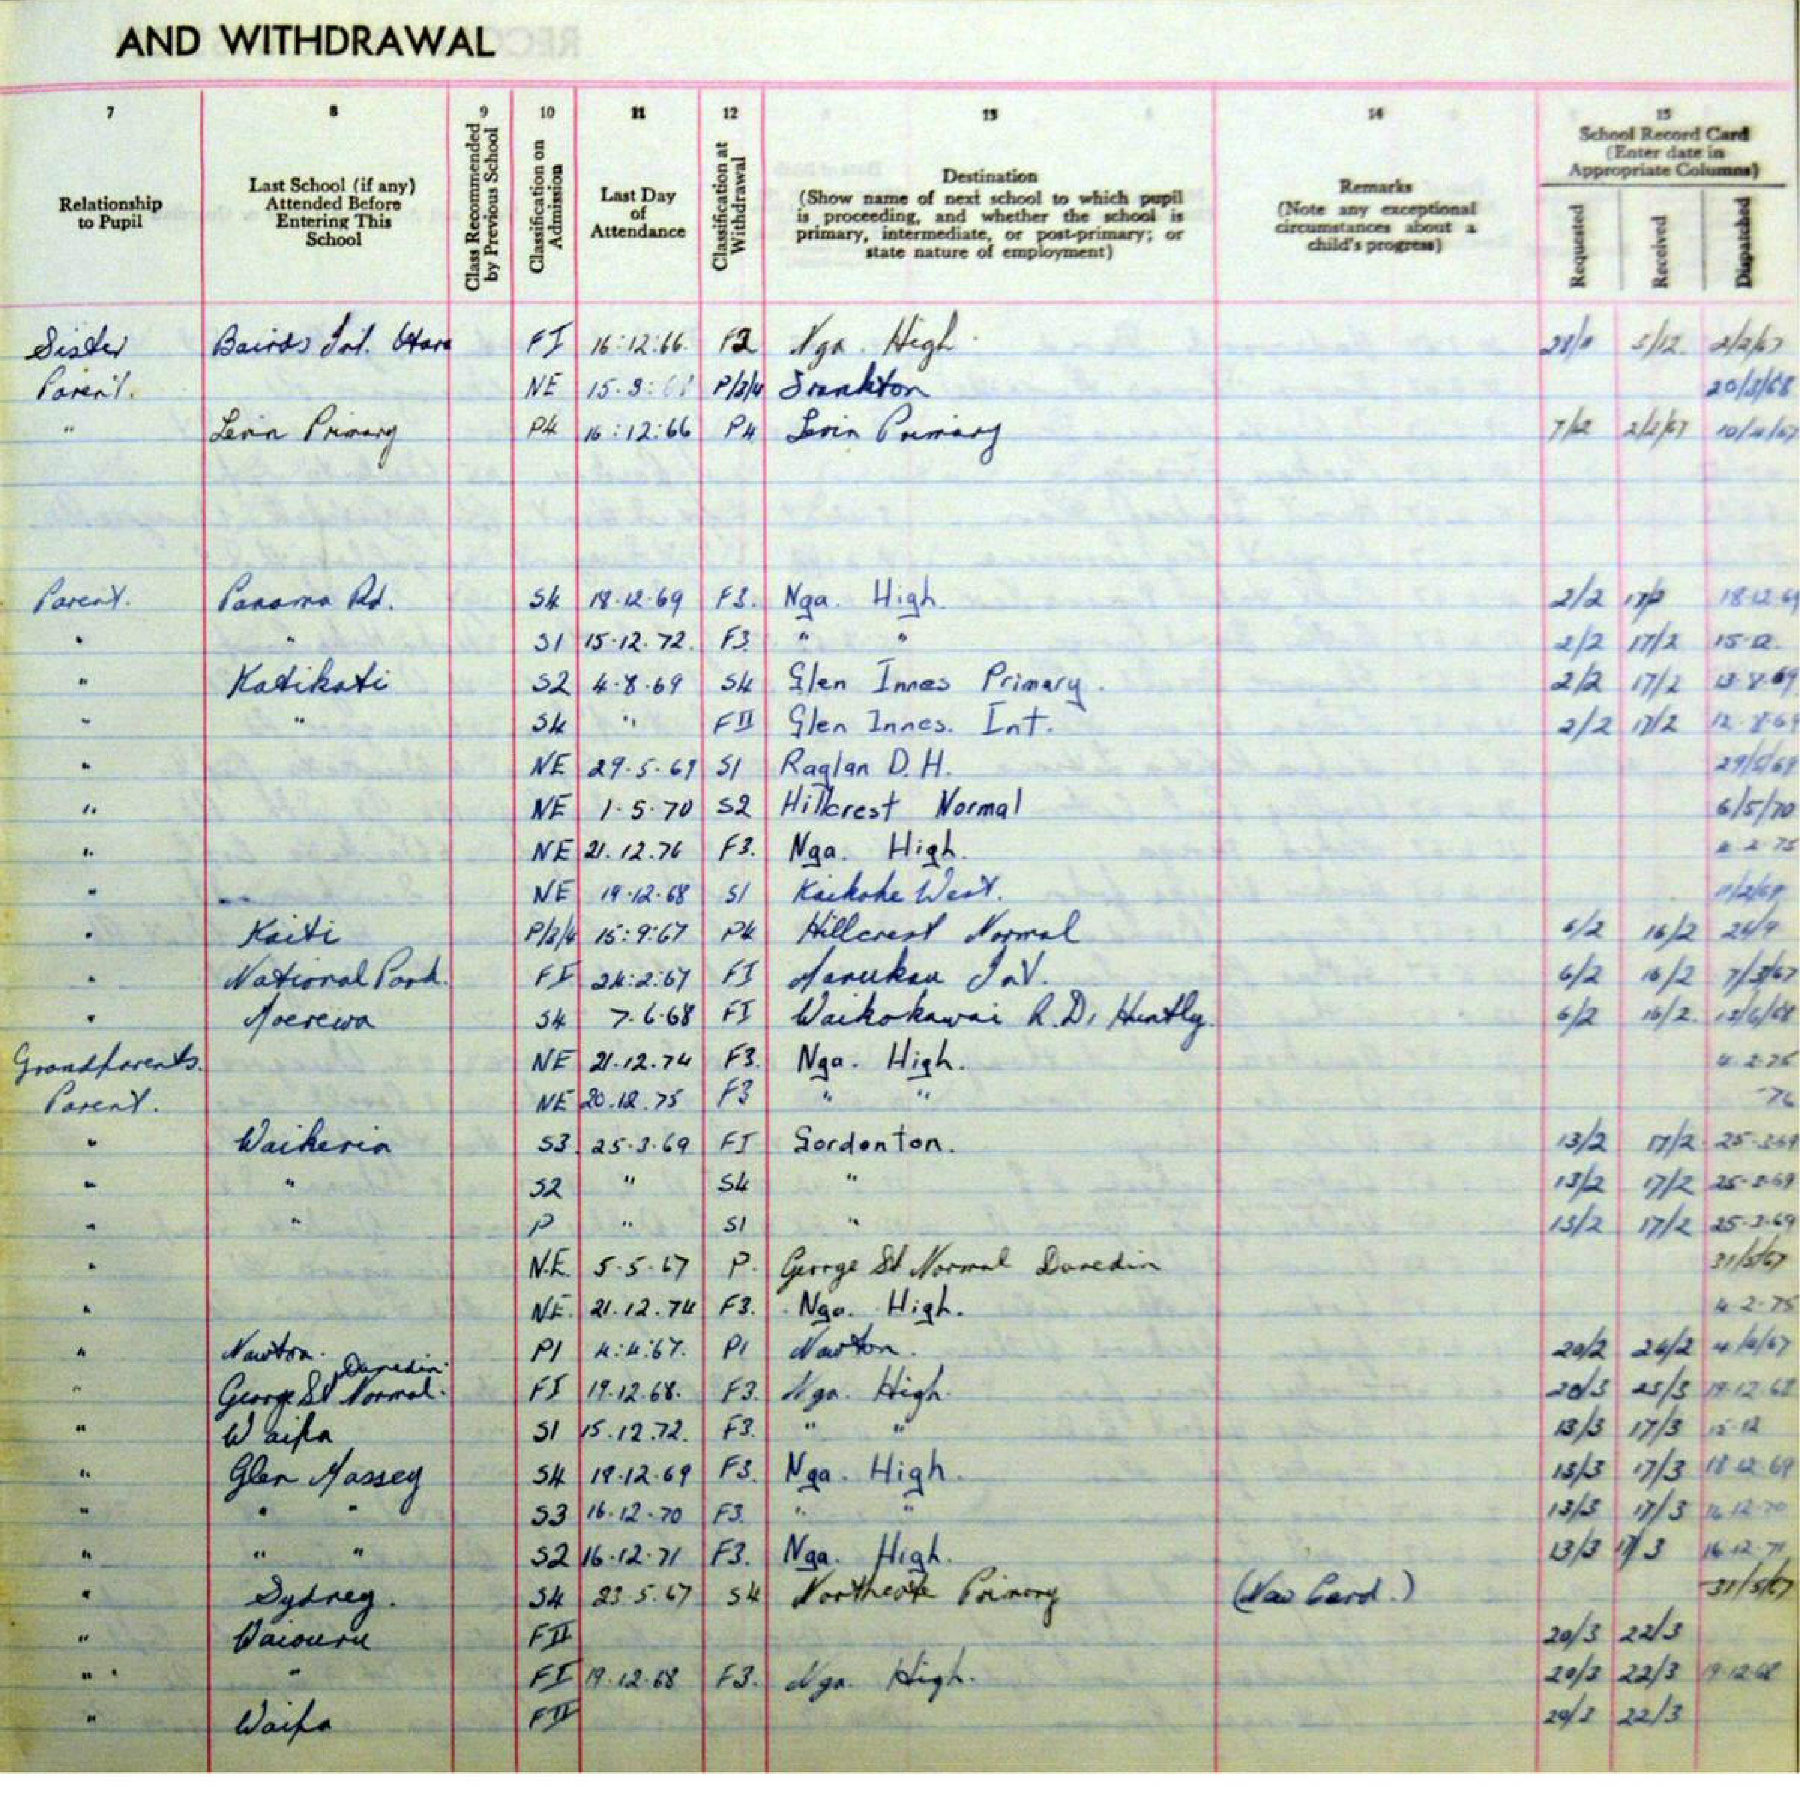 AND WITHDRAWAL
7 8 9 10 11 12 13 14 15
Relationship to Pupil
Last School (if any) Attended Before Entering This School
Class Recommended by Previous School
Classification on Admission
Last Day of Attendance
Classification at Withdrawal
Destination
(Show name of next school to which pupil is proceeding, and whether the school is primary, intermediate, or post-primary; or state nature of employment)
Remarks
(Note any exceptional circumstances about a child's progress)
School Record Card
(Enter date in Appropriate Columns)
Requested Received Dispatched
Sister Bairds Int. FI 16:12:66 F2 Nga. High 2/2/67
Parent. NE P/3/4 Frankton 20/3/68
" Levin Primary P4 16:12:66 P4 Levin Primary 2/2/67 10/4/67
Parent. Panama Rd. S4 18.12.69 F3. Nga. High. 2/2 18.12.69
" " S1 15.12.72. F3. " " 2/2 17/2 15.12.
" Katikati S2 4.8.69 S4 Glen Innes Primary. 2/2 17/2 13.8.69
" " S4 " FII Glen Innes. Int. 2/2 17/2 12.8.69
" NE 29.5.69 S1 Raglan D.H. 29/5/69
" NE 1.5.70 S2 Hillcrest Normal 6/5/70
" NE 21.12.76 F3. Nga. High.
" NE 19.12.68 S1 Kaikohe West. 11/2/69
" Kaiti P/3/4 15:9:67 P4 Hillcrest Normal 6/2 16/2 26/9
" National Park. FI 24:2:67 FI Manukau Int. 6/2 16/2 7/3/67
" Moerewa S4 7.6.68 FI Waikokawai R.D. Huntly. 6/2 16/2. 12/6/68
Grandparents. NE 21.12.74 F3. Nga. High. 4.2.75
Parent. NE 20.12.75 F3 " " 76
" Waikeria S3. 25.3.69 FI Gordonton. 13/2 17/2 25.3.69
" " S2 " S4 " 13/2 17/2 25.3.69
" " P " S1 " 13/2 17/2 25.3.69
" N.E. 5.5.67 P. George St Normal Dunedin 31/5/67
" NE. 21.12.74 F3. Nga. High. 4.2.75
" Newton. P1 4:4:67. P1 Newton. 20/2 24/2 4/4/67
" George St Normal. Dunedin. FI 19.12.68. F3. Nga. High. 20/3 23/3 19.12.68
" Waipa S1 15.12.72. F3. " " 13/3 17/3 15.12
" Glen Massey S4 18.12.69 F3. Nga. High. 13/3 17/3 18.12.69
" " " S3 16.12.70 F3. " " 13/3 17/3 16.12.70
" " " S2 16.12.71 F3. Nga. High. 13/3 17/3 16.12.71
" Sydney. S4 23.5.67 S4 Northcote Primary (New Card.) 31/5/67
" Waiouru FII 20/3 22/3
" " FI 19.12.68 F3. Nga. High. 20/3 22/3 19.12.68
" Waipa FII 20/3 22/3